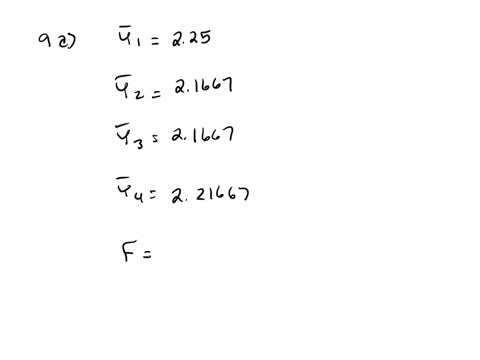 9 a) ȳ1 = 2.25
ȳ2 = 2.1667
ȳ3 = 2.1667
ȳ4 = 2.21667
F =